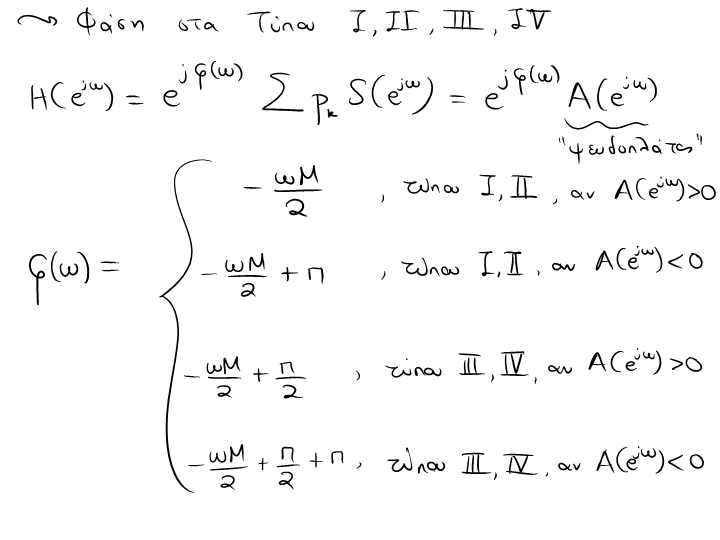 ~> Φάση στα Τύπου I, II, III, IV
H(e^{jω}) = e^{jφ(ω)} Σ p_k S(e^{jω}) = e^{jφ(ω)} A(e^{jω})
"ψευδοπλάτος"
φ(ω) = { -ωM/2 , τύπου I, II , αν A(e^{jω})>0
-ωM/2 + π , τύπου I, II , αν A(e^{jω})<0
-ωM/2 + π/2 , τύπου III, IV, αν A(e^{jω})>0
-ωM/2 + π/2 + π, τύπου III, IV, αν A(e^{jω})<0